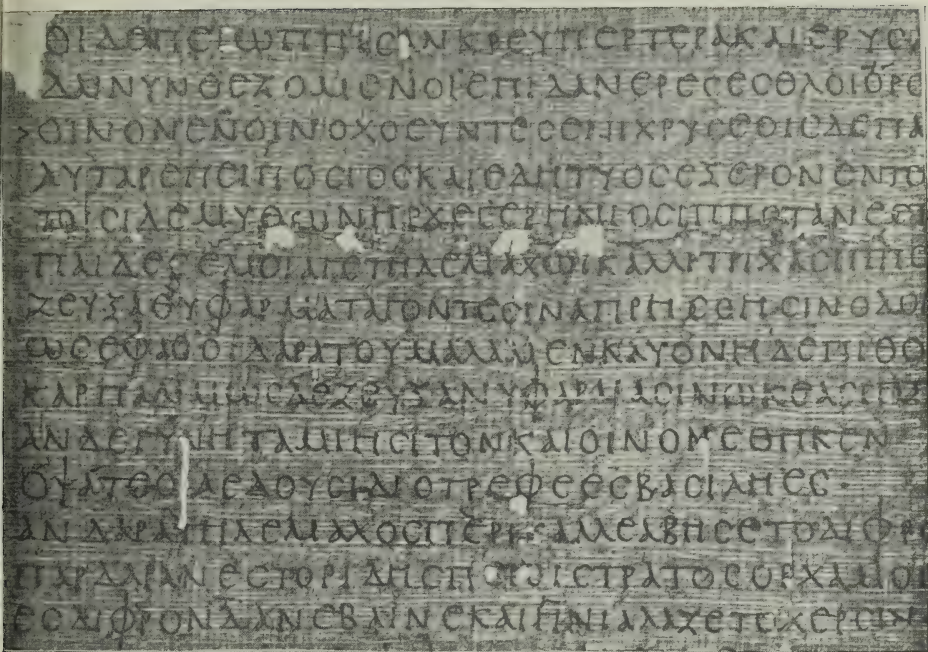 ΟΙΔΕΠΕΙΩΠΤΗСΑΝΚΡΕΥΠΕΡΤΕΡΑΚΑΙΕΡΥСΑ
ΔΑΙΝΥΝΘΕΖΟΜΕΝΟΙΕΠΙΔΑΝΕΡΕСΕСΘΛΟΙΟΡΟ
>ΟΙΝΟΝΕΝΟΙΝΟΧΟΕΥΝΤΕСΕΝΙΧΡΥСΕΟΙСΔΕΠΑ
ΑΥΤΑΡΕΠΕΙΠΟСΙΟСΚΑΙΕΔΗΤΥΟСΕΞΕΡΟΝΕΝΤΟ
ΤΟΙСΙΔΕΜΥΘΩΝΗΡΧΕΓΕΡΗΝΙΟСΙΠΠΟΤΑΝΕСΤ
ΠΑΙΔΕСΕΜΟΙΑΓΕΤΗΛΕΜΑΧΩΙΚΑΛΛΙΤΡΙΧΑСΙΠΠΟ
ΖΕΥΞΑΘΥΦΑΡΜΑΤΑΓΟΝΤΕСΙΝΑΠΡΗССΗСΙΝΟΔΟΙ
ΩСΕΦΑΘΟΙΔΑΡΑΤΟΥΜΑΛΑΜΕΝΚΛΥΟΝΗΔΕΠΙΘΟ
ΚΑΡΠΑΛΙΜΩСΔΕΖΕΥΞΑΝΥΦΑΡΜΑСΙΝΩΚΕΑСΙΠΠ
ΑΝΔΕΓΥΝΗΤΑΜΙΗСΙΤΟΝΚΑΙΟΙΝΟΝΕΘΗΚΕΝ
ΟΨΑΤΕΟΙΑΕΔΟΥСΙΔΙΟΤΡΕΦΕΕСΒΑСΙΛΗΕС
ΑΝΔΑΡΑΤΗΛΕΜΑΧΟСΠΕΡΙΚΑΛΛΕΑΒΗСΕΤΟΔΙΦΡΟ
ΠΑΡΔΑΡΑΝΕСΤΟΡΙΔΗСΠΙСΙСΤΡΑΤΟСΟΡΧΑΜΟС
ΕСΔΙΦΡΟΝΔΑΝΕΒΑΙΝΕΚΑΙΗΝΙΑΛΑΖΕΤΟΧΕΡСΙΝ